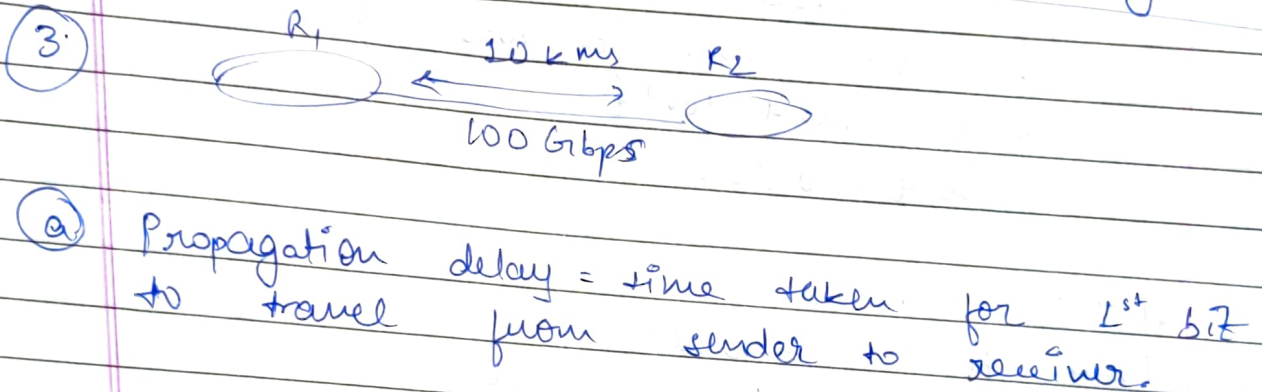 3.
R1
10 kms
R2
100 Gbps
a Propagation delay = time taken for 1st bit
to travel from sender to receiver.